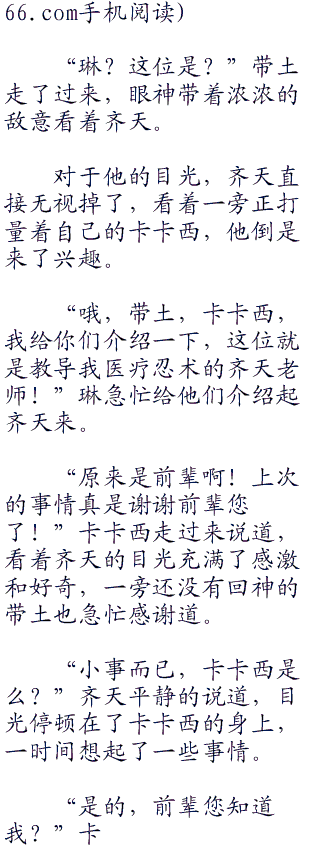 66.com手机阅读)
“琳？这位是？”带土
走了过来，眼神带着浓浓的
敌意看着齐天。
对于他的目光，齐天直
接无视掉了，看着一旁正打
量着自己的卡卡西，他倒是
来了兴趣。
“哦，带土，卡卡西，
我给你们介绍一下，这位就
是教导我医疗忍术的齐天老
师！”琳急忙给他们介绍起
齐天来。
“原来是前辈啊！上次
的事情真是谢谢前辈您
了！”卡卡西走过来说道，
看着齐天的目光充满了感激
和好奇，一旁还没有回神的
带土也急忙感谢道。
“小事而已，卡卡西是
么？”齐天平静的说道，目
光停顿在了卡卡西的身上，
一时间想起了一些事情。
“是的，前辈您知道
我？”卡